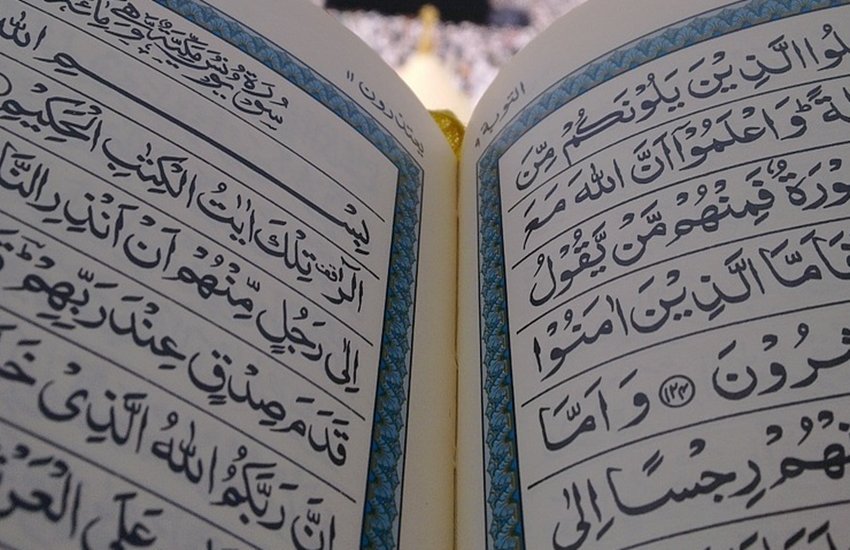 التوبة ٩
الَّذِيْنَ يَلُوْنَكُمْ مِّنَ
وَاعْلَمُوْۤا اَنَّ اللّٰهَ مَعَ
فَمِنْهُمْ مَّنْ يَّقُوْلُ
فَاَمَّا الَّذِيْنَ اٰمَنُوْا
شِرُوْنَ ﴿١٢٤﴾ وَ اَمَّا
هُمْ رِجْسًا اِلٰى
يعتذرون ١١
سُوْرَةُ يُوْنُسَ مَكِّيَّةٌ
بِسْمِ اللّٰهِ
الٓرٰ تِلْكَ اٰيٰتُ الْكِتٰبِ الْحَكِيْمِ
اِلٰى رَجُلٍ مِّنْهُمْ اَنْ اَنْذِرِ النَّا
قَدَمَ صِدْقٍ عِنْدَ رَبِّهِمْ
اِنَّ رَبَّكُمُ اللّٰهُ الَّذِىْ
عَلَى الْعَرْ